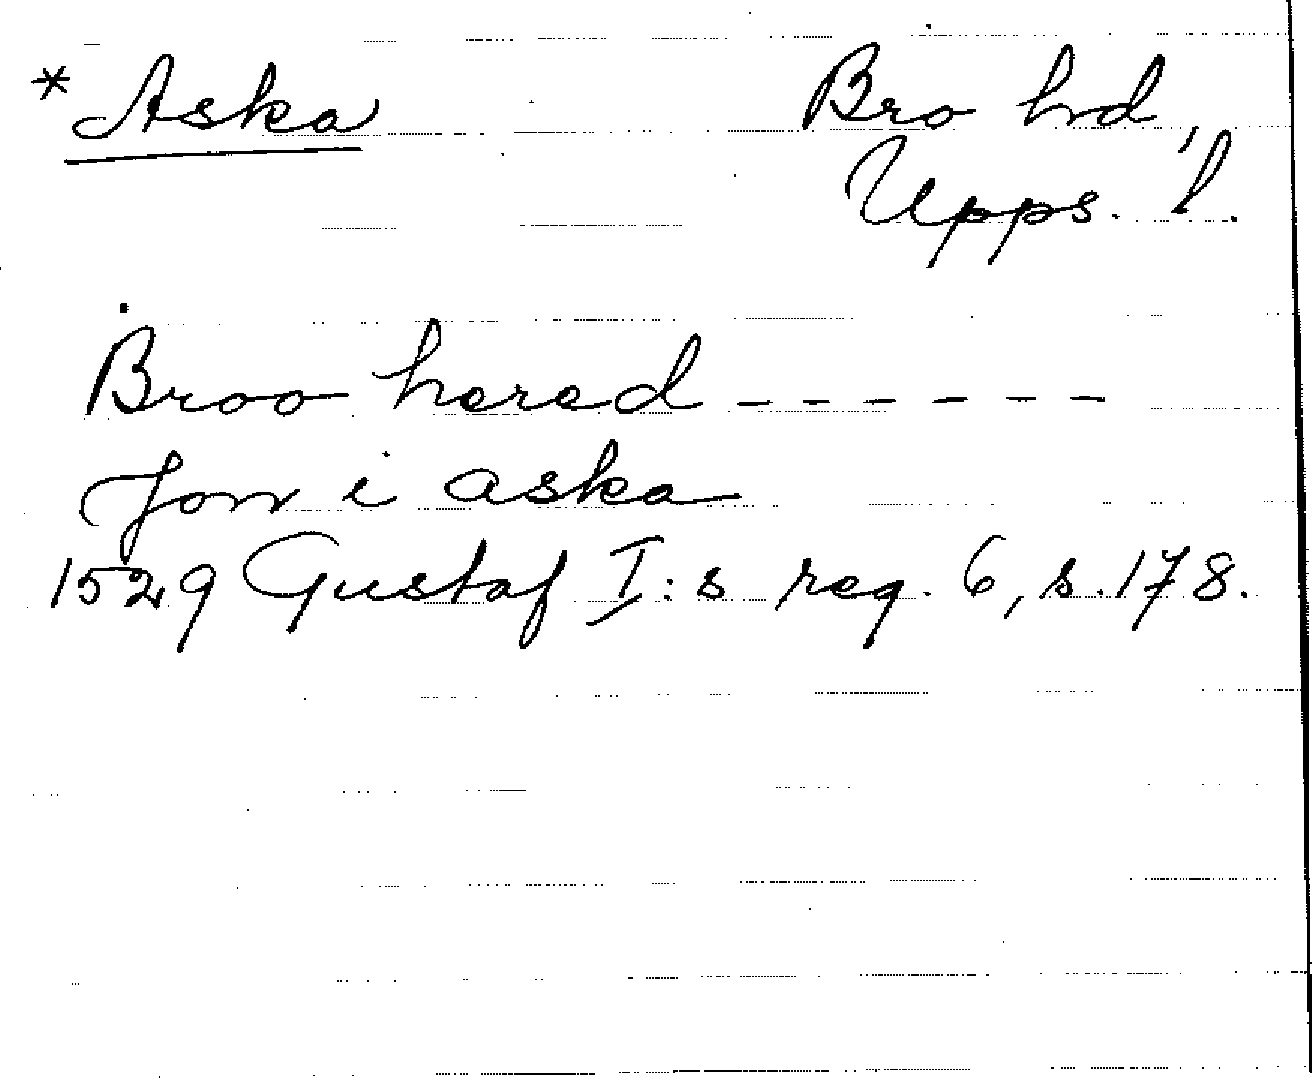 * Aska
Bro hd,
Upps. l.
Broo hered ------
Jon i aska
1529 Gustaf I:s reg. 6, s. 178.